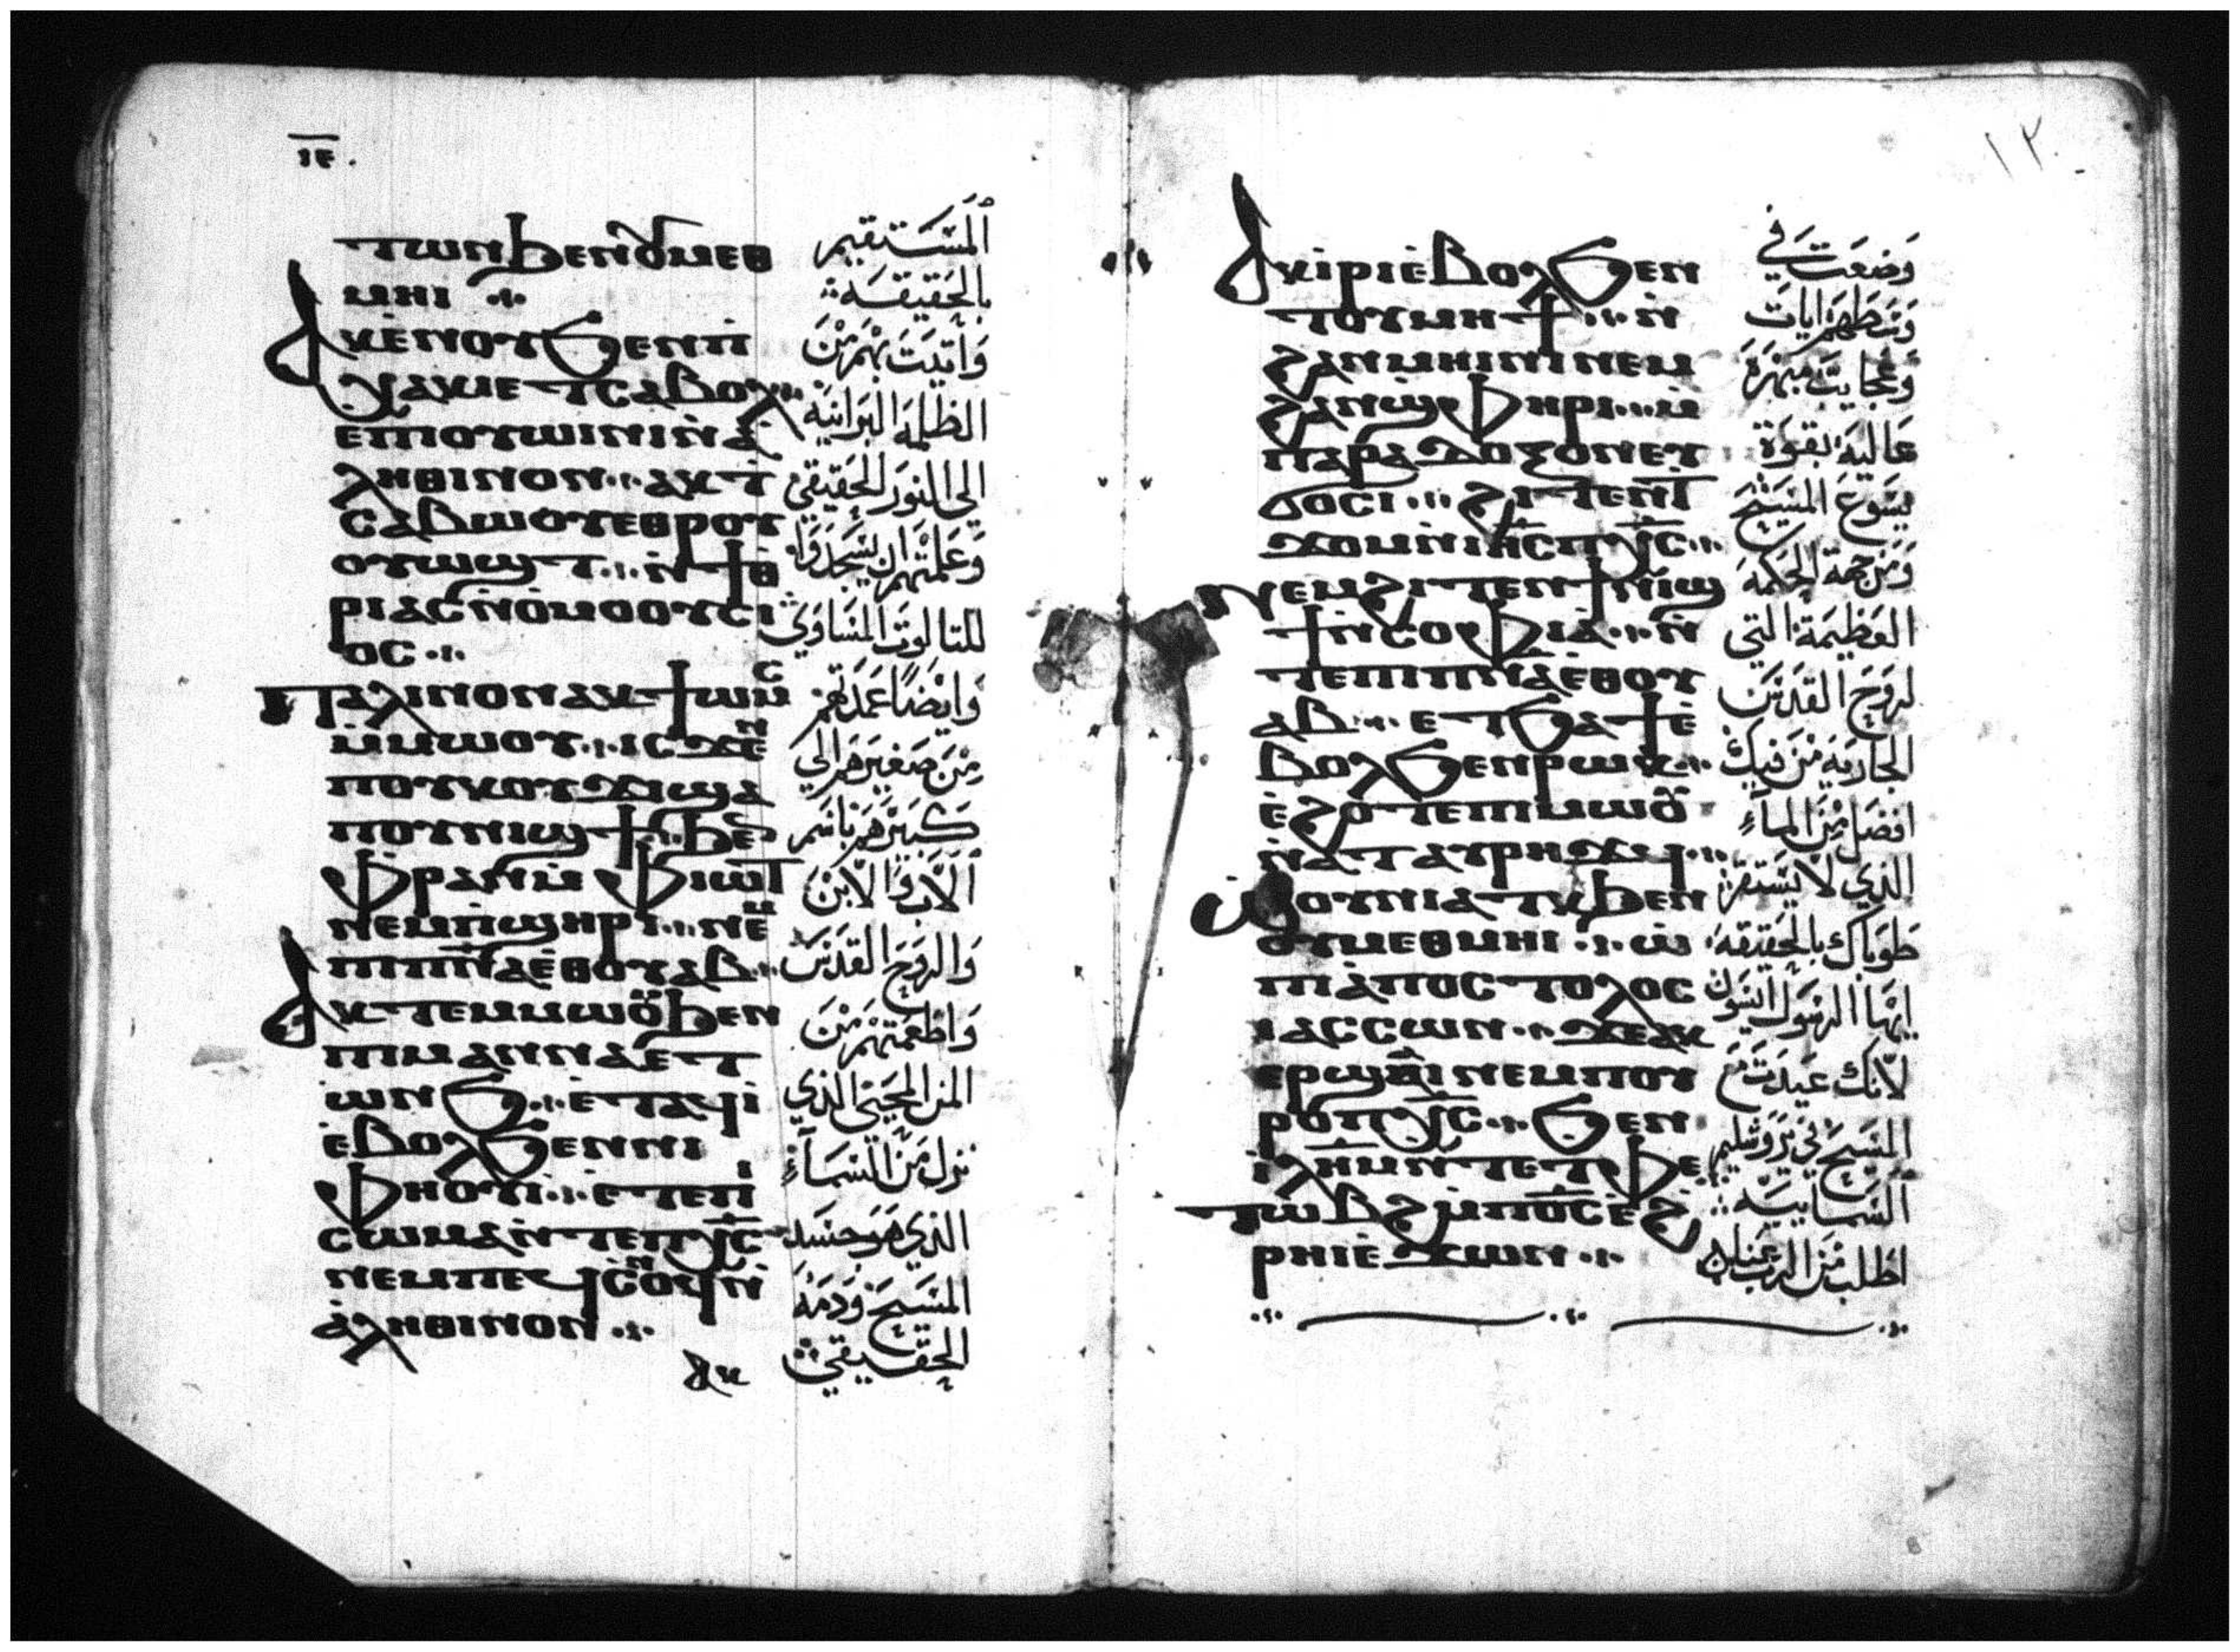 ⲓⲉ
ⲧⲱⲛϧⲉⲛⲟⲩⲙⲉⲑ
ⲙⲏⲓ
ⲁⲕⲉ̀ⲛⲟⲩϧⲉⲛⲡⲓ̀
ⲭⲁⲕⲉⲧⲥⲁⲃⲟⲗ
ⲉⲡⲓⲟⲩⲱⲓⲛⲓⲛ̀ⲁ̀
ⲗⲏⲑⲓⲛⲟⲛ ⲁⲕⲧ̀
ⲥⲁⲃⲱⲟⲩⲉⲑⲣⲟⲩ
ⲟⲩⲱϣⲧ ⲛ̀ϯⲑ̀
ⲣⲓⲁⲥⲛ̀ⲟ̀ⲙⲟⲟⲩⲥⲓ
ⲟⲥ
ⲡⲁⲗⲓⲛⲟⲛⲁⲕϯⲱⲙⲥ
ⲙ̀ⲙⲱⲟⲩ ⲓⲥϫⲉⲛ
ⲡⲟⲩⲕⲟⲩϫⲓϣⲁ
ⲡⲟⲩⲛⲓϣϯ ϧⲉⲛ
ⲫ̀ⲣⲁⲛⲙ̀ⲫ̀ⲓⲱⲧ
ⲛⲉⲙⲡ̀ϣⲏⲣⲓ ⲛⲉⲙ
ⲡⲓⲡ̅ⲛ̅ⲁ̅ⲉ̀ⲑⲟⲩⲁⲃ
ⲁⲕⲧⲉⲙⲙⲱⲟⲩϧⲉⲛ
ⲡⲓⲙⲁⲛⲛⲁⲉⲧ
ⲱ̀ⲛϧ ⲉ̀ⲧⲁϥⲓ̀
ⲉ̀ⲃⲟⲗϧⲉⲛⲛⲓ
ⲫⲏⲟⲩⲓ̀ ⲉ̀ⲧⲉⲡⲓ
ⲥⲱⲙⲁⲛ̀ⲧⲉⲡⲭ̅ⲥ̅
ⲛⲉⲙⲡⲉϥⲥ̀ⲛⲟϥⲛ̀
ⲁ̀ⲗⲏⲑⲓⲛⲟⲛ
ⲁⲕ
المستقيم
بالحقيقة
واتيت بهم من
الظلمة البرانية
الى النور الحقيقي
وعلمتهم ان يسجدوا
للثالوث المساوي
وايضًا عمدتهم
من صغيرهم الى
كبيرهم باسم
الاب والابن
والروح القدس
واطعمتهم من
المن المحيي الذي
نزل من السماء
الذي هو جسد
المسيح ودمه
الحقيقي
١٢
ⲁⲕⲓ̀ⲣⲓⲉ̀ⲃⲟⲗϧⲉⲛ
ⲧⲟⲩⲙⲏϯ ⲛ̀
ϩⲁⲛⲙⲏⲓⲛⲓⲛⲉⲙ
ϩⲁⲛϣ̀ⲫⲏⲣⲓ ⲙ̀
ⲡⲁⲣⲁⲇⲟⲝⲟⲛⲉⲩ
ϭⲟⲥⲓ ϩⲓⲧⲉⲛⲧ̀
ϫⲟⲙⲛ̀ⲓⲏ̅ⲥ̅ⲡⲭ̅ⲥ̅
ⲛⲉⲙϩⲓⲧⲉⲛϯⲛⲓϣ
ϯⲛ̀ⲥⲟⲫⲓⲁ̀ ⲛ̀
ⲧⲉⲡⲓⲡ̅ⲛ̅ⲁ̅ⲉ̀ⲑⲟⲩ
ⲁⲃ ⲉⲧϧⲁϯⲉ̀
ⲃⲟⲗϧⲉⲛⲣⲱⲕ
ⲉ̀ϩⲟⲧⲉⲡⲓⲙⲱⲟⲩ
ⲛ̀ⲁⲧⲁⲩⲣⲏϫϥ
ⲱⲟⲩⲛⲓⲁⲧⲕϧⲉⲛ
ⲟⲩⲙⲉⲑⲙⲏⲓ ⲱ̀
ⲡⲓⲁ̀ⲡⲟⲥⲧⲟⲗⲟⲥ
ⲓⲁⲥⲥⲱⲛ ϫⲉⲁⲕ
ⲉⲣϣⲁⲓⲛⲉⲙⲡⲟⲩ
ⲣⲟⲡⲭ̅ⲥ̅ ϧⲉⲛ
ⲓ̀ⲗ̅ⲏ̅ⲙ̅ⲛ̀ⲧⲉⲧⲫⲉ
ⲧⲱⲃϩⲙ̀ⲡⲟ̅ⲥ̅ⲉ̀ϩ
ⲣⲏⲓⲉ̀ϫⲱⲛ
وضعت في
وسطهم ايات
وعجايب مبهرة
عالية بقوة
يسوع المسيح
ومن جهة الحكمة
العظيمة التي
لروح القدس
الجارية من فيك
افضل من الماء
الذي لا يستقر
طوباك بالحقيقة
ايها الرسول
لانك عيدت مع
المسيح في يروشليم
السمايية
اطلب من الرب عنا